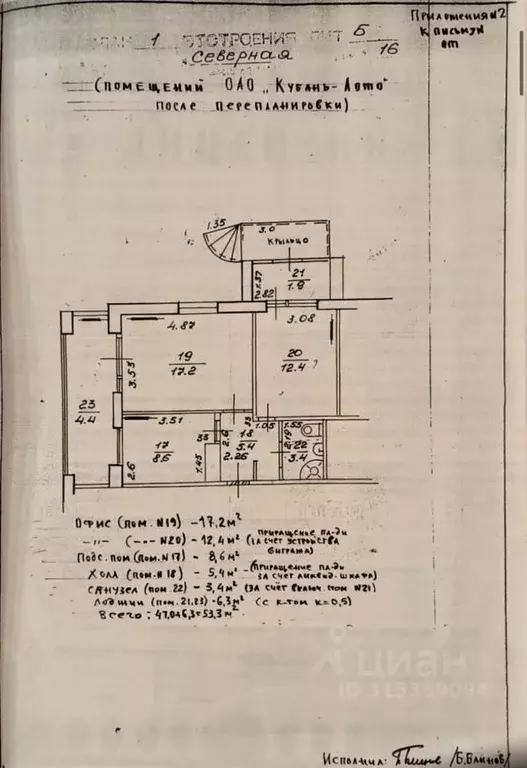 Приложения №2
к письму
от
ПЛАН 1 ЭТОТРОЕНИЯ ЛИТ Б
Северная 16
(помещений ОАО „Кубань-Лото"
после перепланировки)
1.35
3.0
крыльцо
1.37
21
1.9
2.82
4.87
3.08
19
17.2
3.53
20
12.4
23
4.4
3.51
17
8.6
2.6
1.45
33
2.6
18
5.4
2.26
33
1.05
1.55
2.19
22
3.4
Офис (пом. №19) - 17,2 м²
-"- (-"- №20) - 12,4 м² (приращение пл-ди за счет устройства витража)
Подс. пом (пом. №17) - 8,6 м²
Холл (пом. №18) - 5,4 м² (приращение пл-ди за счет ликвид. шкафа)
Санузел (пом. 22) - 3,4 м² (за счет включ. пом №21)
Лоджии (пом. 21,23) - 6,3 м² (с к-том к=0,5)
Всего: 47,0+6,3=53,3 м²
циан
Исполнил: /Б.Блинов/